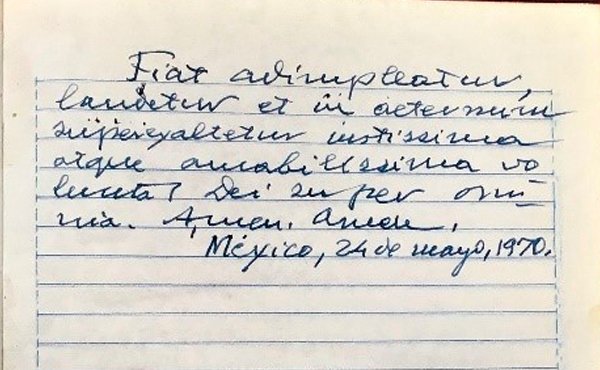 Fiat adimpleatur,
laudetur et in aeternum
superexaltetur iustissima
atque amabilissima vo
luntas Dei super om=
nia. Amen. Amen.
México, 24 de mayo, 1970.